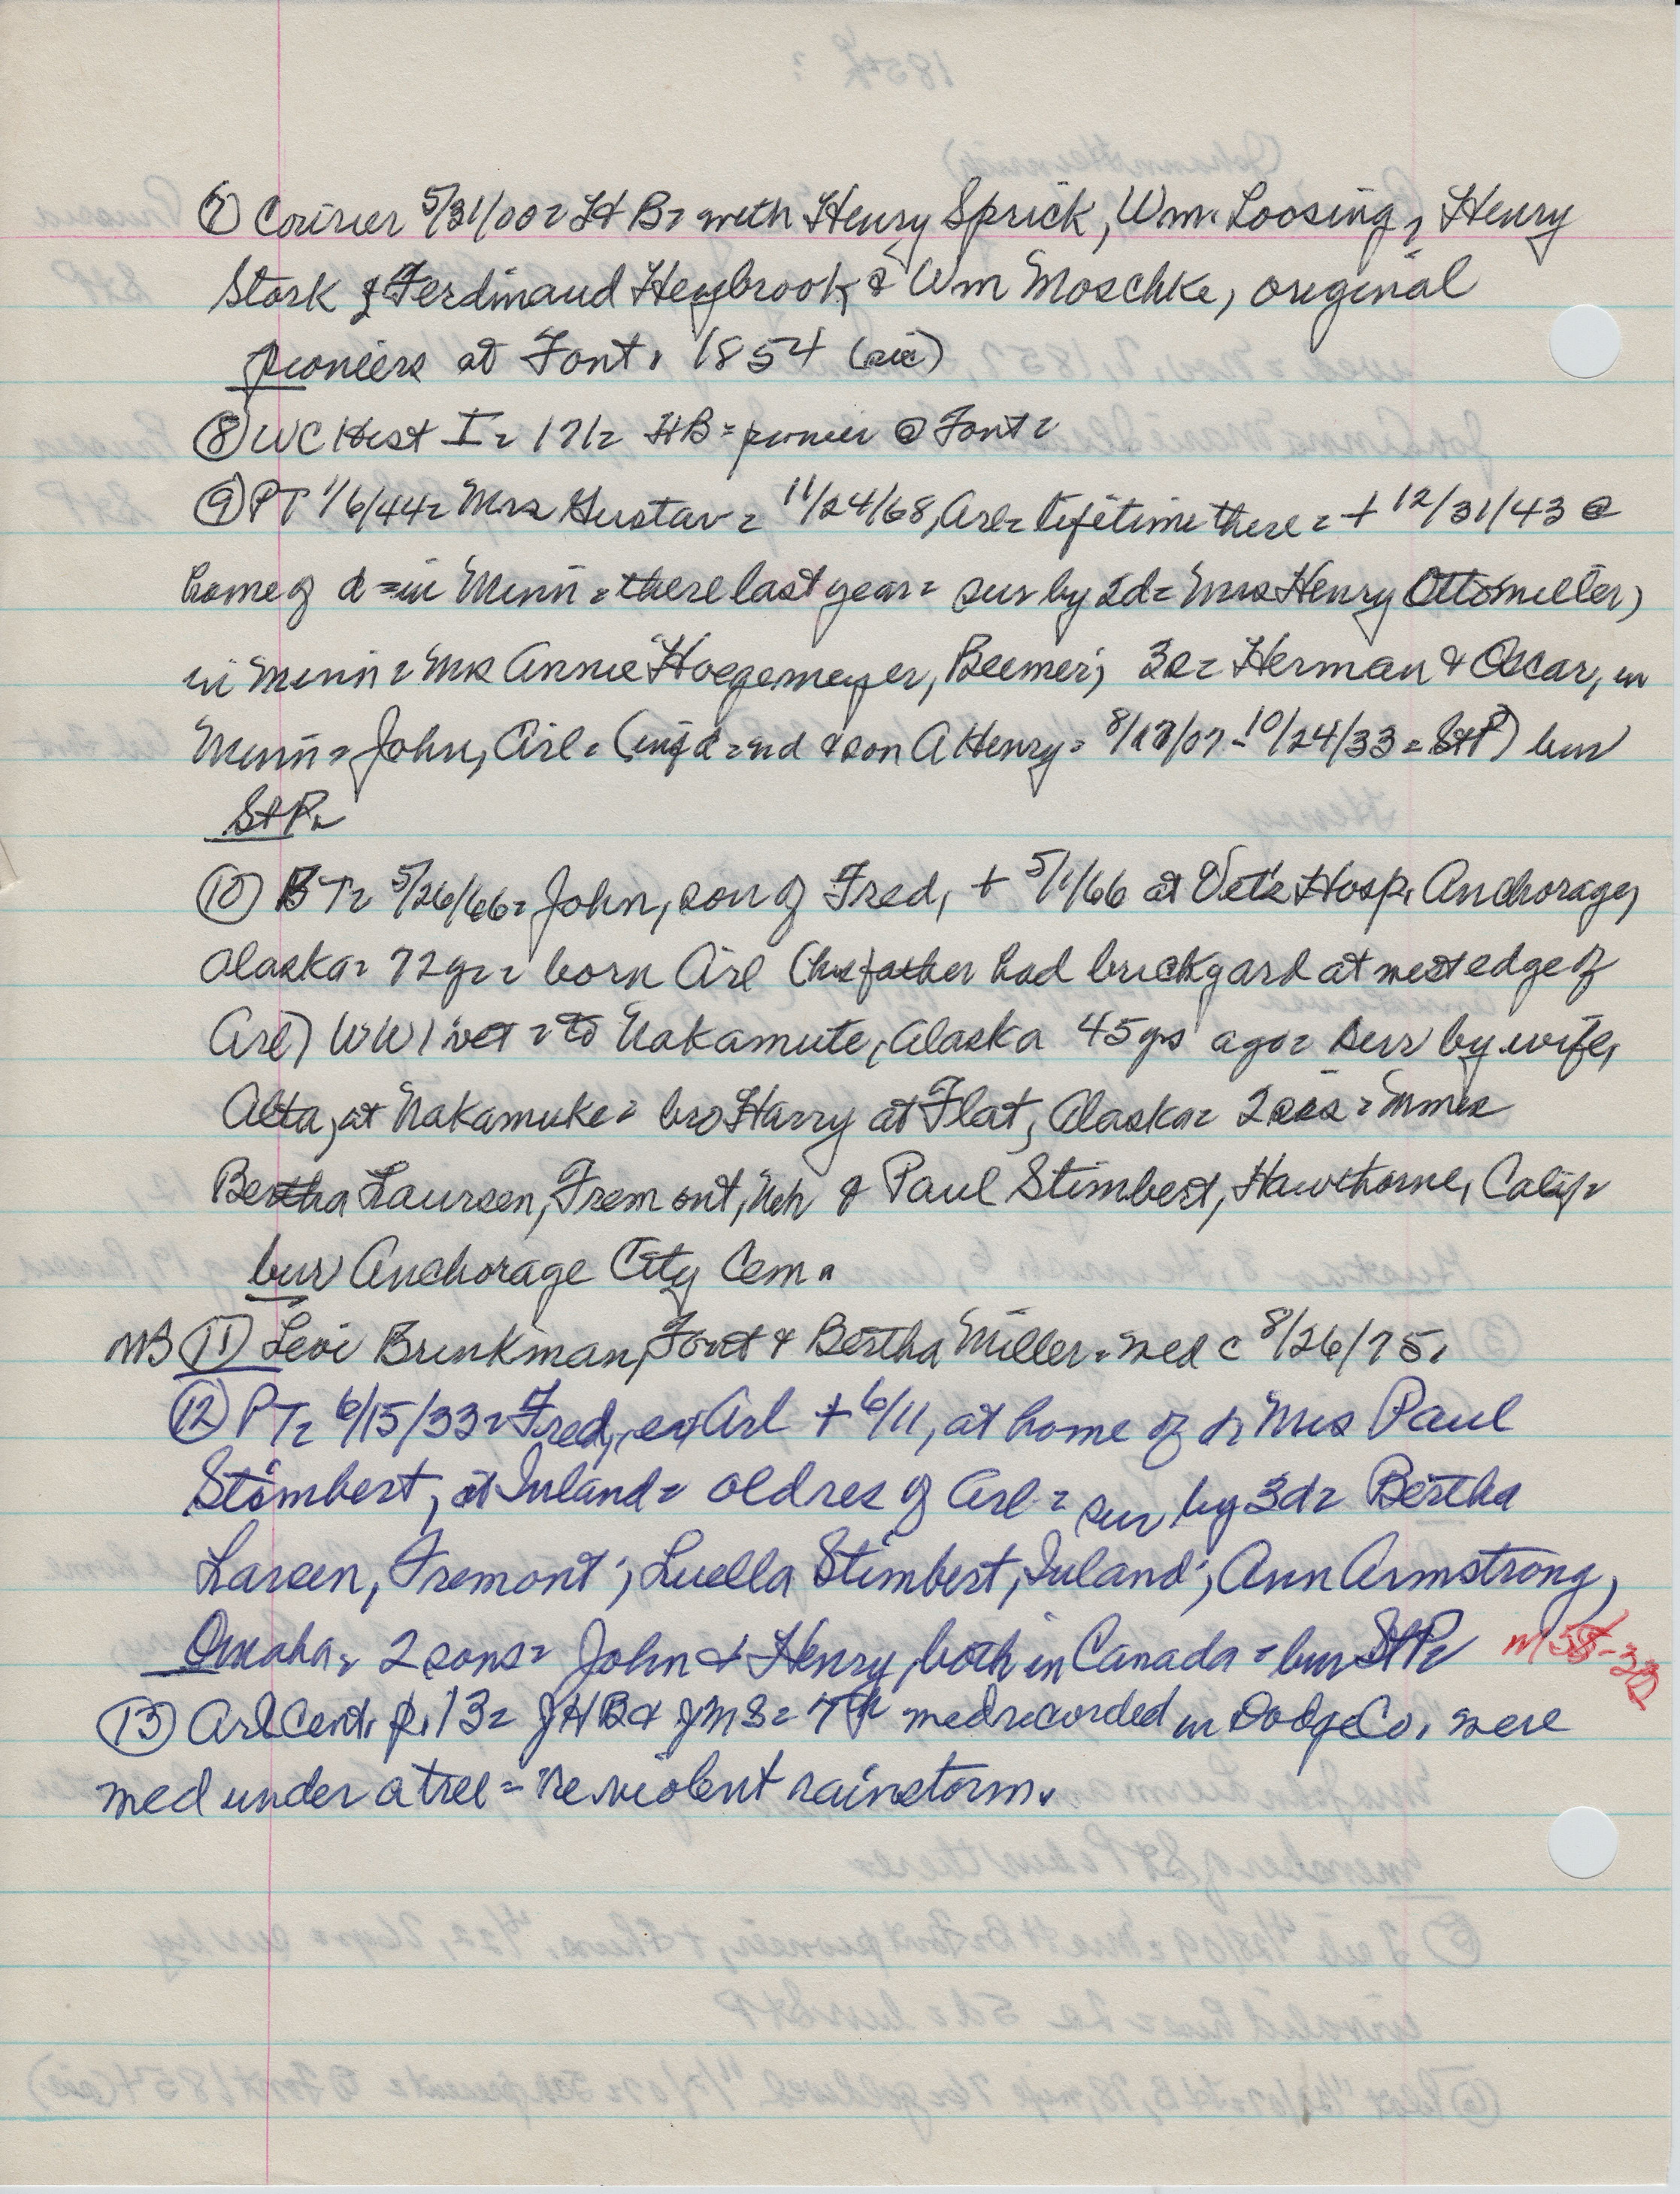 ⑦ Courier 5/31/00 = H B = with Henry Sprick, Wm. Loosing, Henry
Stork & Ferdinand Heybrook & Wm Moschke, original
pioneers at Font. 1854 (sic)
⑧ WC Hist I = 171 = HB = pioneer @ Font =
⑨ PT 1/6/44 = Mrs Gustav = 11/24/68, Arl = lifetime there = + 12/31/43 @
home of d = in Minn = there last year = sur by 2d = Mrs Henry Ottomeller,
in Minn = Mrs Annie Hoegemeyer, Beemer; 3s = Herman & Oscar, in
Minn = John, Arl = (inf d = nd & son A Henry = 8/17/07 - 10/24/33 = St P) bur
St P =
⑩ BT = 5/26/66 = John, son of Fred, + 5/1/66 at Vet's Hosp. Anchorage,
Alaska = 72 yr = born Arl (his father had brickyard at west edge of
Arl) WW1 vet = to Nakamute, Alaska 45 ys ago = surv by wife,
Alta, at Nakamuke = bro Harry at Flat, Alaska = 2 sis = Mmes
Bertha Laursen, Fremont, Neb & Paul Stimbert, Hawthorne, Calif =
bur Anchorage City Cem.
MB ⑪ Levi Brinkman, Font & Bertha Miller = med c 8/26/75.
⑫ PT = 6/15/33 = Fred, ex Arl + 6/11, at home of d, Mrs Paul
Stimbert, at Inland = old res of Arl = sur by 3d = Bertha
Larsen, Fremont; Luella Stimbert, Inland; Ann Armstrong,
Omaha = 2 sons = John & Henry, both in Canada = bur St P =
⑬ Arl Cent. p. 13 = JHB & JMS = 7th med recorded in Dodge Co. were
med under a tree = re violent rainstorm.